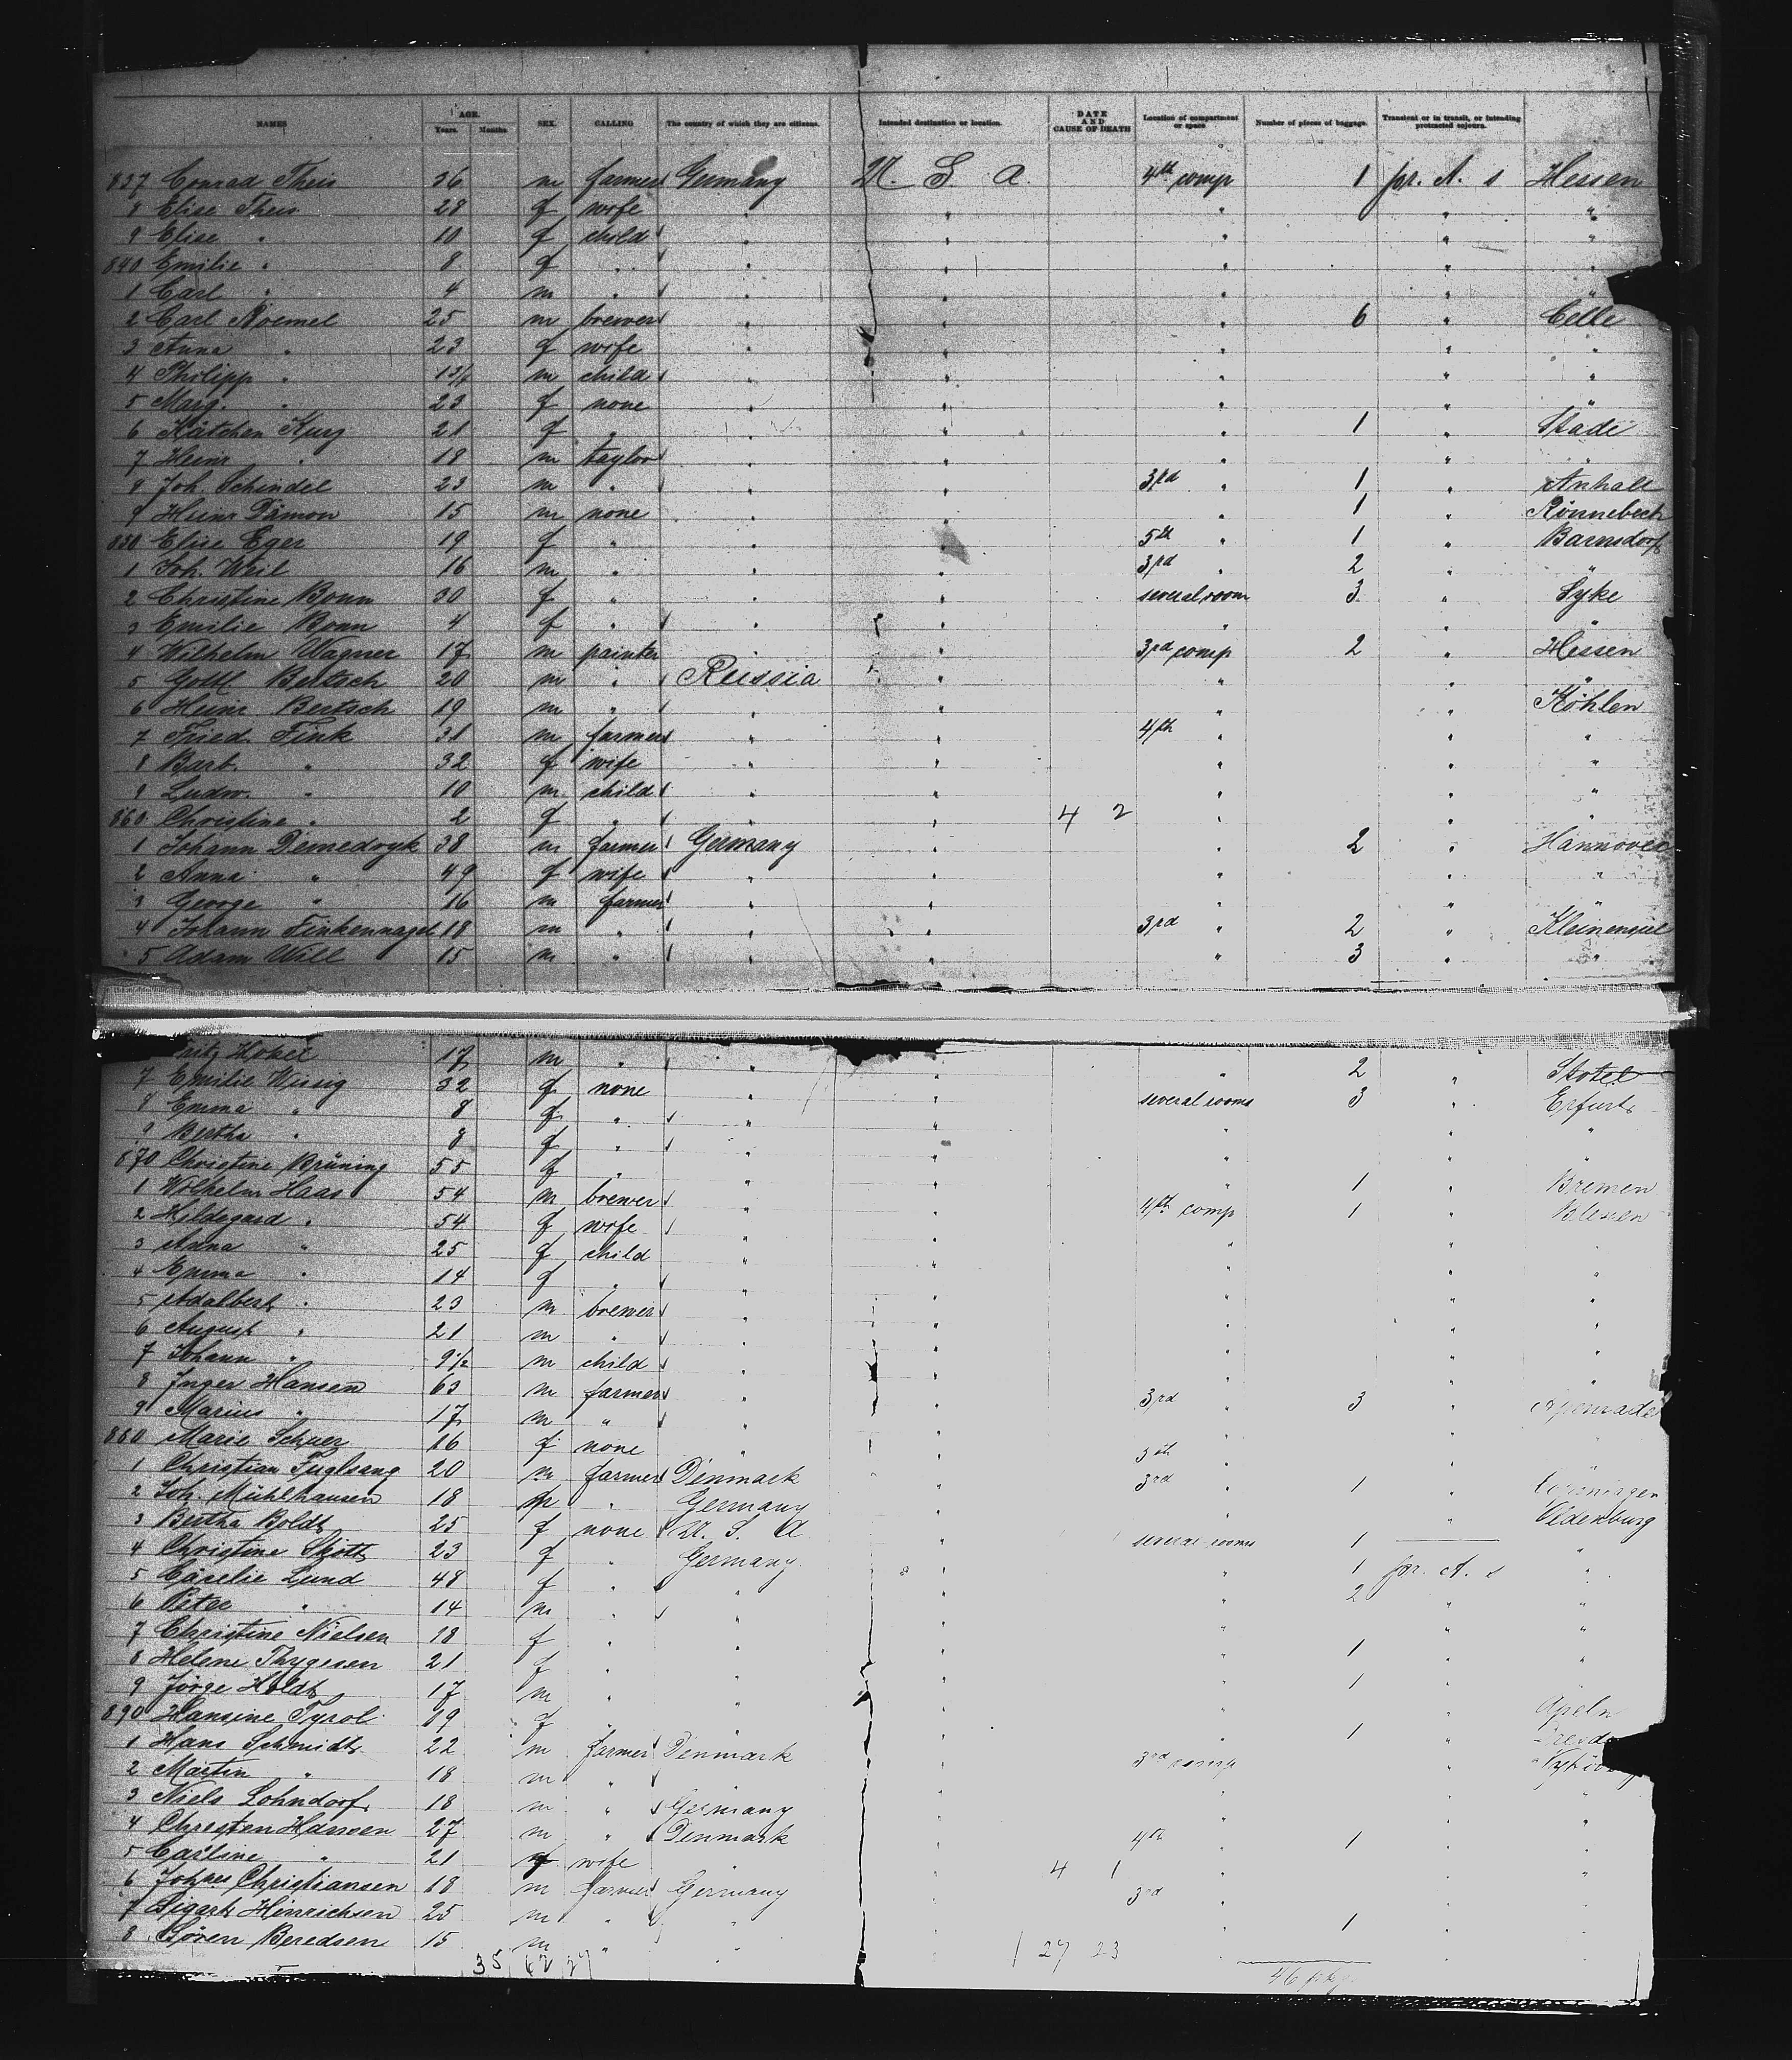 NAMES AGE. SEX. CALLING The country of which they are citizens. Intended destination or location. DATE AND CAUSE OF DEATH Location of compartment or space. Number of pieces of baggage. Transient or in transit, or intending protracted sojourn.
Years. Months.
837 Conrad Theis 36 m farmer Germany U. S. A. 4th comp 1 pr. A. s Hessen
8 Elise Theis 28 f wife " " " " "
9 Elise " 10 f child " " " " "
840 Emilie " 8 f " " " " " "
1 Carl " 4 m " " " " " "
2 Carl Roemel 25 m brewer " " " 6 " Celle
3 Anna " 23 f wife " " " " "
4 Philipp " m child " " " " "
5 Marg. " 23 f none " " " " "
6 Kätchen Kurz 21 f " " " " 1 " Stade
7 Heinr " 18 m taylor " " " " "
8 Joh. Schindel 23 m " " " 3rd " 1 " Anhalt
9 Heinr Dämon 15 m none " " " 1 " Rönnebeck
850 Elise Eger 19 f " " " 5th " 1 " Barnsdorf
1 Joh. Weil 16 m " " " 3rd " 2 " "
2 Christine Bonn 30 f " " " several room 3 " Syke
3 Emilie Bonn 4 f " " " " " "
4 Wilhelm Wagner 17 m painter " " 3rd comp 2 " Hessen
5 Gottl Bertsch 20 m " Russia " " " "
6 Heinr. Bertsch 19 m " " " " " Köhlen
7 Fried. Fink 31 m farmer " " 4th " " "
8 Barb. " 32 f wife " " " " "
9 Ludw. " 10 m child " " " " "
860 Christine " 2 f " " " 4 2 " " "
1 Johann Demedryk 38 m farmer Germany " " 2 " Hannover
2 Anna " 49 f wife " " " " "
3 George " 16 m farmer " " " " "
4 Johann Finkennagel 18 m " " " 3rd " 2 " Kleinensiel
5 Adam Will 15 m " " " " 3 " "
Fritz 17 m " " " " 2 " Stotel
7 Emilie Wissig 32 f none " " several rooms 3 " Erfurt
8 Emma " 8 f " " " " " "
9 Bertha " 8 f " " " " " "
870 Christine Brüning 55 f " " " " 1 " Bremen
1 Wilhelm Haas 54 m brewer " " 4th comp 1 "
2 Hildegard " 54 f wife " " " " "
3 Anna " 25 f child " " " " "
4 Emma " 14 f " " " " " "
5 Adalbert " 23 m brewer " " " " "
6 August " 21 m " " " " " "
7 Johann " 9½ m child " " " " "
8 Inger Hansen 63 m farmer " " 3rd " 3 " Apenrade
9 Marius " 17 m " " " " " "
880 Marie 16 f none " " 5th "
1 Christian Fuglsang 20 m farmer Denmark " 3rd 1 "
2 Joh. Mühlhausen 18 m " Germany " " Oldenburg
3 Bertha Boldt 25 f none U. S. A " several rooms 1 "
4 Christine Skött 23 f " Germany " " 1 pr. A. s "
5 Cäcelie Lund 48 f " " " " 2 " "
6 Peter " 14 m " " " " " "
7 Christine Nielsen 18 f " " " " 1 " "
8 Helene Thygesen 21 f " " " " 1 "
9 Jörge Holdt 17 m " " " " "
890 Hansine Tyrol 19 f " " " " 1 "
1 Hans Schmidt 22 m farmer Denmark " 3rd comp "
2 Martin " 18 m " " " " " "
3 Niels Lohndorf 18 m " Germany " " " "
4 Christen Hansen 27 m " Denmark " 4th " 1 " "
5 Carline " 21 f wife " " 4 1 " " "
6 Johnes Christiansen 18 m farmer Germany " 3rd " " "
7 Sigart Hinrichsen 25 m " " " " 1 " "
8 Sören Beredsen 15 m " " " " " "
35 62 27 1 27 23 46 pkg.